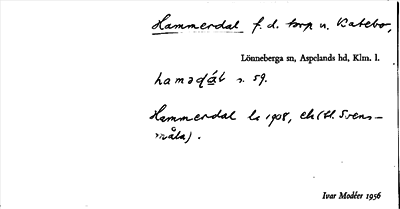 Hammerdal f. d. torp u. Katebo,
Lönneberga sn, Aspelands hd, Klm. l.
s. 59.
Hammerdal la 1908, ek (tl. Svens-
måla).
Ivar Modéer 1956